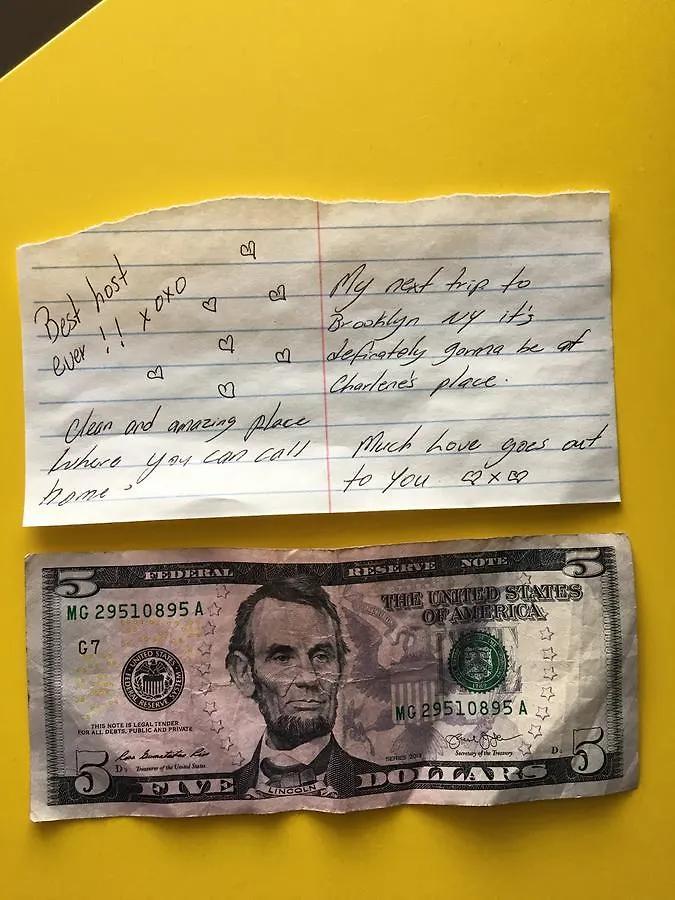 Best host
ever !! xoxo
Clean and amazing place
Where you can call
home.
My next trip to
Brooklyn NY it's
definately gonna be at
Charlene's place.
Much Love goes out
to you x
FEDERAL RESERVE NOTE
5 5
MG 29510895 A
THE UNITED STATES
OF AMERICA
G7
THIS NOTE IS LEGAL TENDER
FOR ALL DEBTS, PUBLIC AND PRIVATE
MG 29510895 A
SERIES 2013
Treasurer of the United States
Secretary of the Treasury
5 5
LINCOLN
FIVE DOLLARS